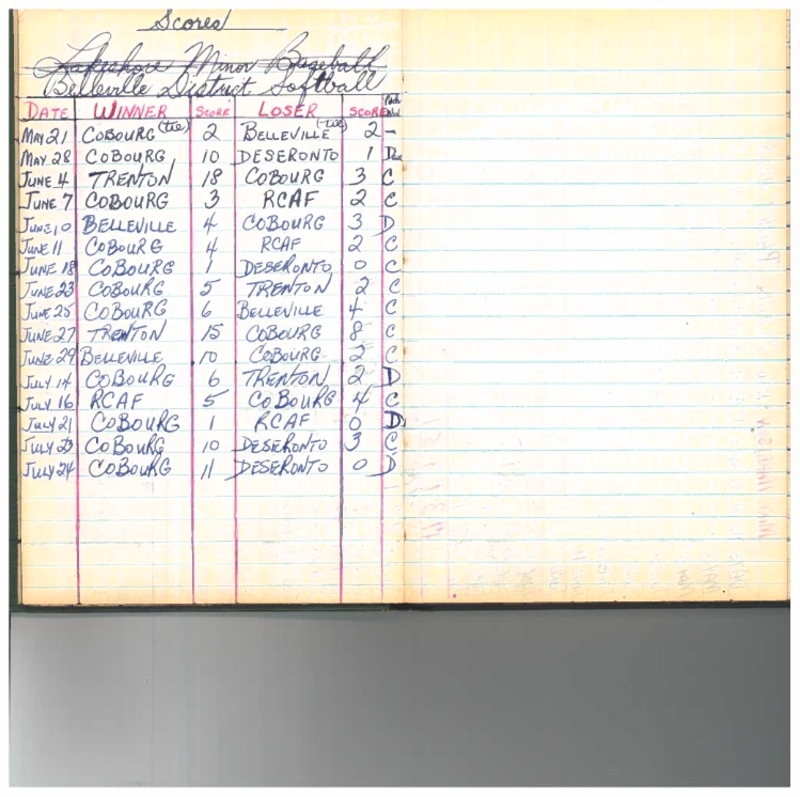 Scores
Lakeshore Minor Baseball
Belleville District Softball
DATE WINNER SCORE LOSER SCORE
MAY 21 COBOURG (tie) 2 BELLEVILLE (tie) 2 -
MAY 28 COBOURG 10 DESERONTO 1
JUNE 4 TRENTON 18 COBOURG 3 C
JUNE 7 COBOURG 3 RCAF 2 C
JUNE 10 BELLEVILLE 4 COBOURG 3 D
JUNE 11 COBOURG 4 RCAF 2 C
JUNE 18 COBOURG 1 DESERONTO 0 C
JUNE 23 COBOURG 5 TRENTON 2 C
JUNE 25 COBOURG 6 BELLEVILLE 4 C
JUNE 27 TRENTON 15 COBOURG 8 C
JUNE 29 BELLEVILLE 10 COBOURG 2 C
JULY 14 COBOURG 6 TRENTON 2 D
JULY 16 RCAF 5 COBOURG 4 C
JULY 21 COBOURG 1 RCAF 0 D
JULY COBOURG 10 DESERONTO 3 C
JULY 24 COBOURG 11 DESERONTO 0 D